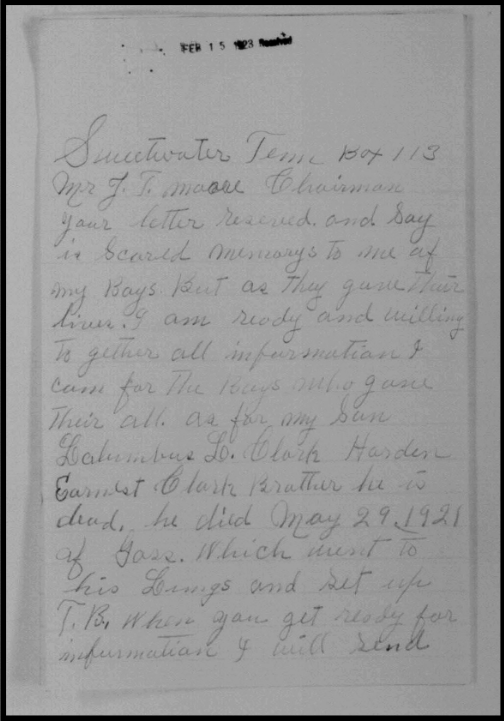 FEB 15 1923 Received
Sweetwater Tenn Box 113
Mr J. T. Moore Chairman
your letter reserved. and Say
is Scared memorys to me of
my Boys But as they gave their
lives. I am ready and willing
to gether all information I
can for the Boys who gave
their all. as for my Sun
Columbus D. Clark Harden
Earnest Clark Brother he is
dead, he died May 29, 1921
of Gass. Which went to
his Lungs and set up
T. B. When you get ready for
information I will send